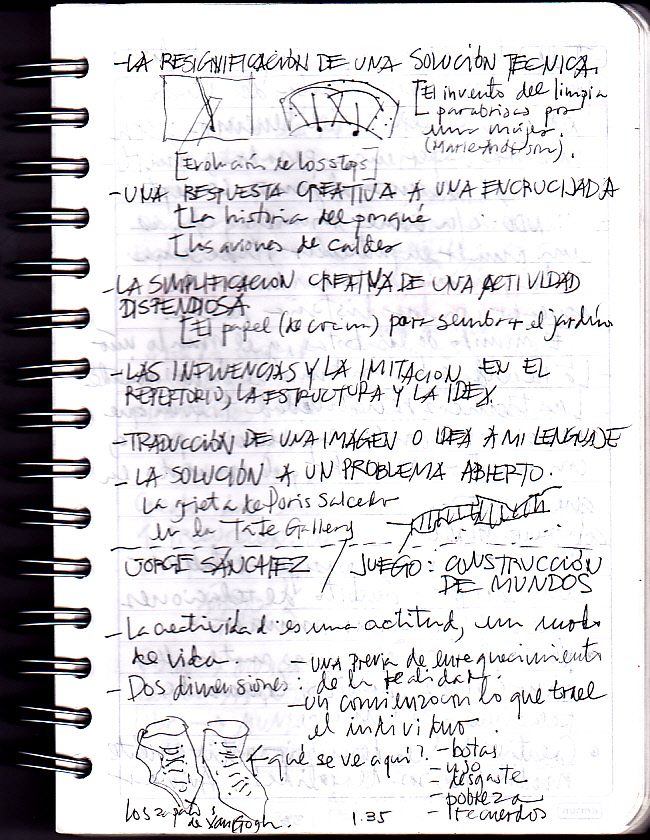 -LA RESIGNIFICACIÓN DE UNA SOLUCIÓN TECNICA.
[El invento del limpia
parabrisas por
una mujer.
(Marie Anderson).
[Evolución de los stops]
-UNA RESPUESTA CREATIVA A UNA ENCRUCIJADA
[La historia del porqué
[Los aviones de Calder
-LA SIMPLIFICACION CREATIVA DE UNA ACTIVIDAD
DISPENDIOSA
[El papel (de cocina) para sembrar el jardín
-LAS INFLUENCIAS Y LA IMITACION EN EL
REPERTORIO, LA ESTRUCTURA Y LA IDEA.
-TRADUCCIÓN DE UNA IMAGEN O IDEA A MI LENGUAJE
- LA SOLUCIÓN A UN PROBLEMA ABIERTO.
La grieta de Doris Salcedo
en la Tate Gallery
JORGE SÁNCHEZ / JUEGO: CONSTRUCCIÓN
DE MUNDOS
-La creatividad es una actitud, un modo
de vida.
- Dos dimensiones:
- una previa de enriquecimiento
de la realidad.
- un comienzo con lo que trae
el individuo.
←qué se ve aquí?
- botas
- ujo
- desgaste
- pobreza
- recuerdos
los zapatos
de Van Gogh.
1.35